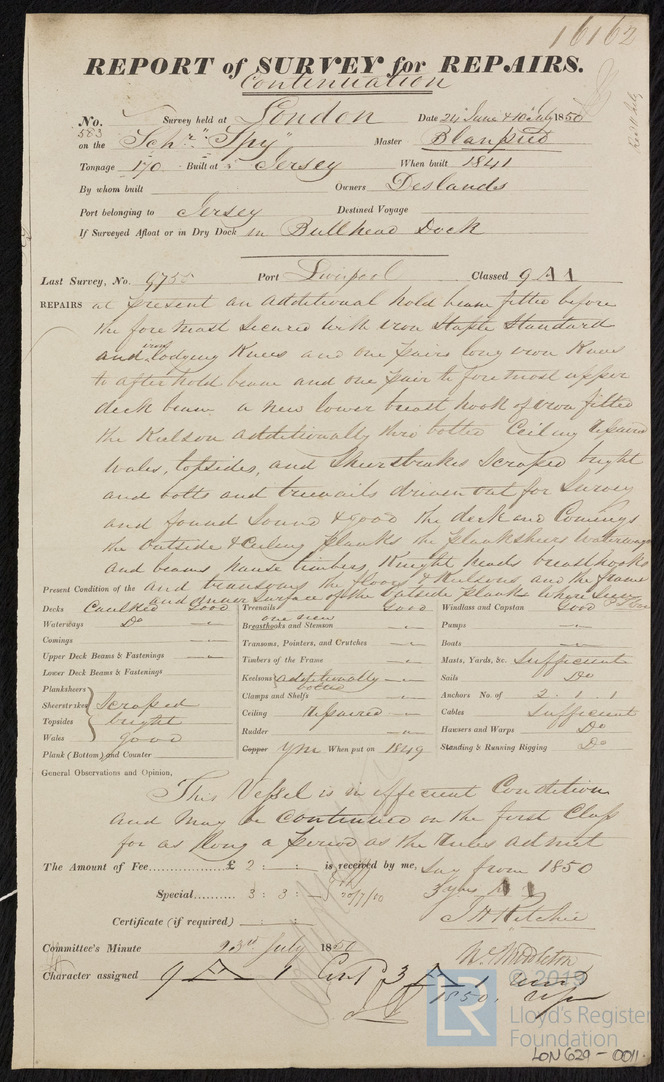 16162
REPORT of SURVEY for REPAIRS.
Continuation
No. 583 Survey held at London Date 24 June & 10 July 1850
on the Schr "Spy" Master Blampied
Tonnage 170 Built at Jersey When built 1841
By whom built Owners Deslandes
Port belonging to Jersey Destined Voyage
If Surveyed Afloat or in Dry Dock in Bullhead Dock
Last Survey, No. 9755 Port Liverpool Classed 9 A 1
REPAIRS at present an additional hold beam fitted before
the fore mast secured with iron Staple Standard
and iron lodging Knees and one pair long iron Knees
to after hold beam and one pair to foremost upper
deck beam. a new lower breast hook of iron fitted
the Keelson additionally thro bolted Ceiling repaired
Wales, topsides, and Sheerstrakes Scraped bright
and bolts and treenails driven out for Survey
and found Sound & good the deck and Comings
the Outside & Ceiling planks the planksheers Waterways
and beams hause timbers, Knight heads breasthooks
and transoms the floors & Keelsons and the frame
and inner surface of the outside planks where seen
Present Condition of the
Decks Caulked Good
Waterways Do
Comings
Upper Deck Beams & Fastenings
Lower Deck Beams & Fastenings
Planksheers
Sheerstrakes Scraped
Topsides bright
Wales good
Plank (Bottom) and Counter
Treenails Good
one new
Breasthooks and Stemson
Transoms, Pointers, and Crutches
Timbers of the Frame
Keelsons additionally bolted
Clamps and Shelfs
Ceiling Repaired
Rudder
Copper YM When put on 1849
Windlass and Capstan Good
Pumps
Boats
Masts, Yards, &c. Sufficient
Sails Do
Anchors No. of 2 . 1 . 1
Cables Sufficient
Hawsers and Warps Do
Standing & Running Rigging Do
General Observations and Opinion,
This Vessel is in efficient Condition
and may be Continued on the first Class
for as long a period as the rules admit
say from 1850
The Amount of Fee £ 2 : : is received by me,
3 yrs
Special 3 : 3 :
J H Ritchie
Certificate (if required) : :
Committee's Minute 23rd July 1850
Wm Middleton
Character assigned 9 A 1 Cont 3 A 1
1850.
© 2019
LR
Lloyd's Register
Foundation
LON 629 - 0011